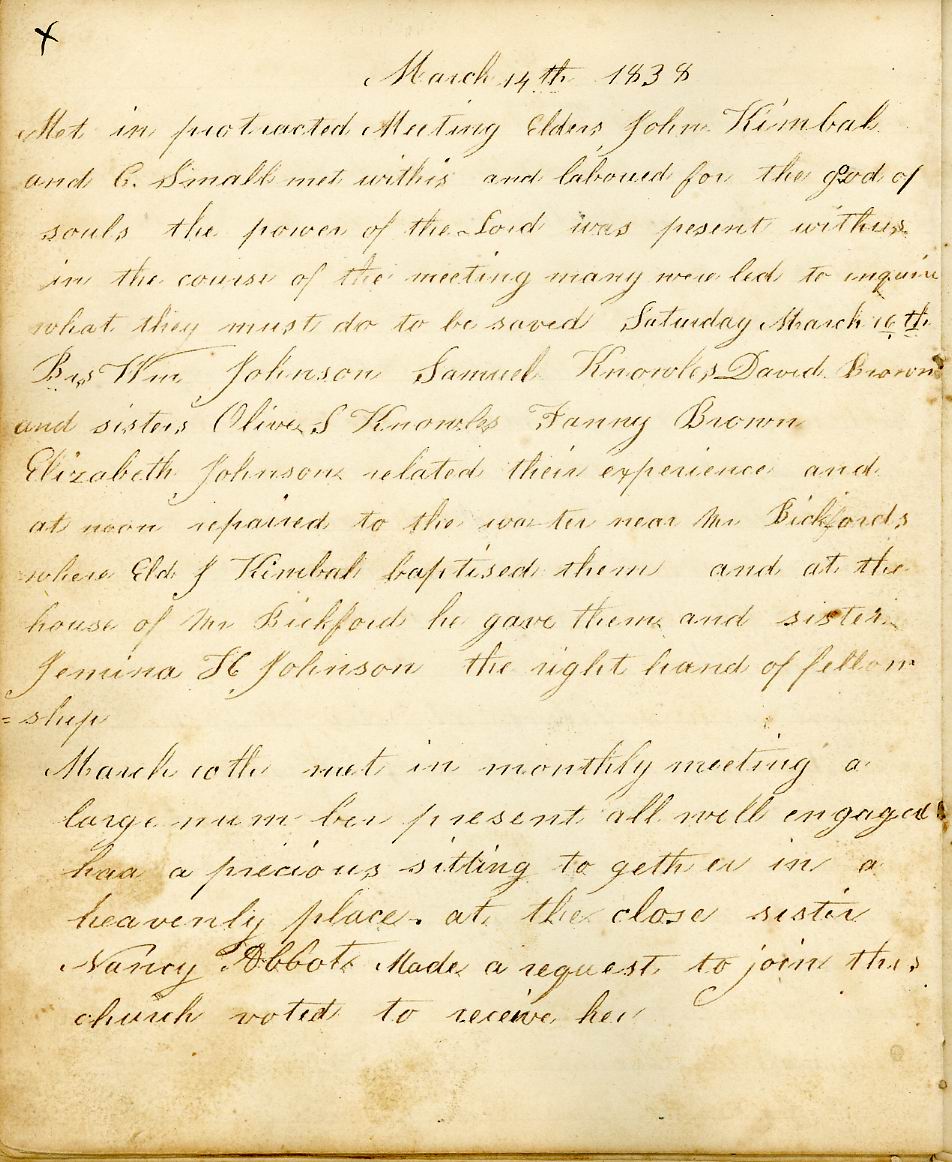 X
March 14th 1838
Met in protracted Meeting Elders John Kimbal
and C. Small met withis and laboued for the god of
souls the power of the Lord was pesent withus
in the course of the meeting many were led to enquire
what they must do to be saved Saturday March 16th
Brs Wm Johnson Samuel Knowles David Brown
and sisters Olive S Knowles Fanny Brown
Elizabeth Johnson related their experience and
at noon repaired to the water near Mr Bickfords
where Eld J Kimbal baptised them and at the
house of Mr Bickford he gave them and sister
Jemina H Johnson the right hand of fellow
=ship
March 10th met in monthly meeting a
large num ber present all well engaged
had a precious sitting to gether in a
heavenly place. at the close sister
Nancy Abbot Made a request to join this
church voted to receive her